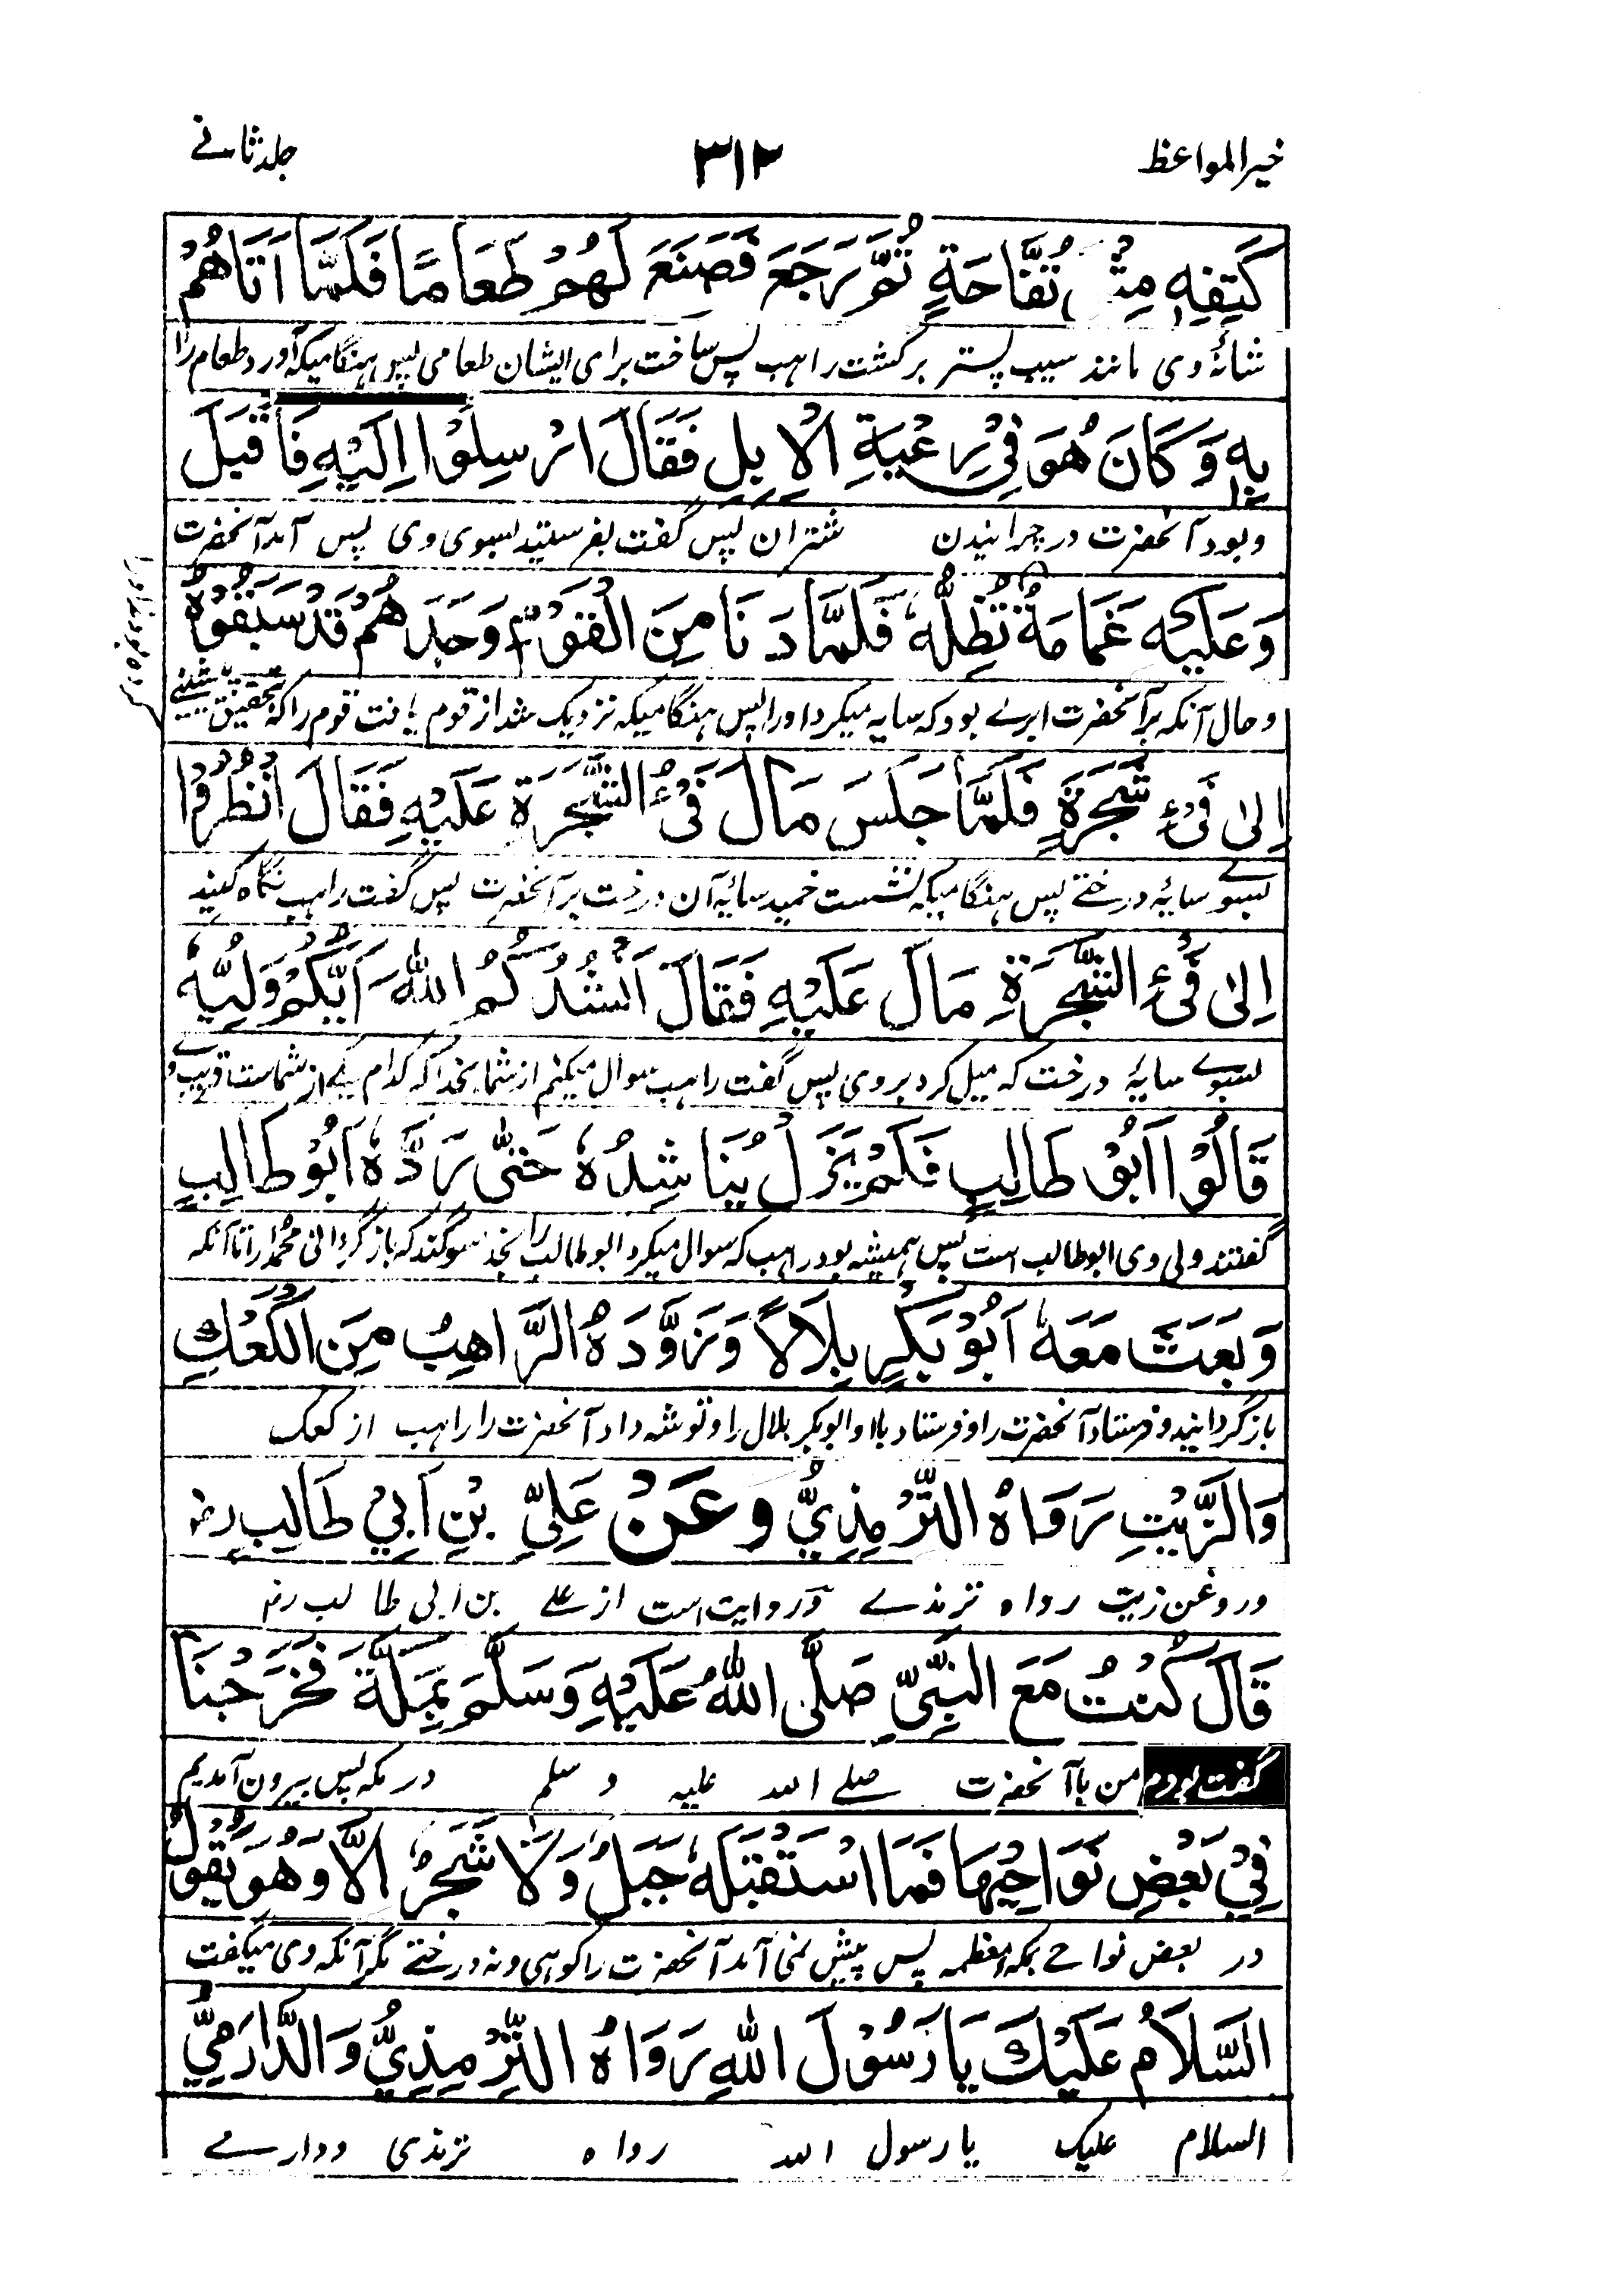 خیر المواعظ
۳۱۲
جلد ثانے
كَتِفِهٖ مِثْلَ تُفَّاحَةٍ ثُمَّ رَجَعَ فَصَنَعَ لَهُمْ طَعَامًا فَلَمَّا اَتَاهُمْ
شانۂ وی مانند سیب پستر برگشت راہب پس ساخت برای ایشان طعامی پس ہنگامیکہ آورد طعام را
بِهٖ وَكَانَ هُوَ فِيْ رِعْيَةِ الْاِبِلِ فَقَالَ اَرْسِلُوْا اِلَيْهِ فَاَقْبَلَ
وبود آنحضرت در چرانیدن شتران پس گفت بفرستید بسوی وی پس آمد آنحضرت
وَعَلَيْهِ غَمَامَةٌ تُظِلُّهٗ فَلَمَّا دَنَا مِنَ الْقَوْمِ وَجَدَهُمْ قَدْ سَبَقُوْهُ
وحال آنکہ بر آنحضرت ابرے بود کہ سایہ میکرد اورا پس ہنگامیکہ نزدیک شد از قوم یافت قوم را کہ بتحقیق پیشی
اِلٰى فَيْءِ شَجَرَةٍ فَلَمَّا جَلَسَ مَالَ فَيْءُ الشَّجَرَةِ عَلَيْهِ فَقَالَ انْظُرُوْا
بسوے سایۂ درختے پس ہنگامیکہ نشست خمید سایۂ آن درخت بر آنحضرت پس گفت راہب نگاہ کنید
اِلٰى فَيْءِ الشَّجَرَةِ مَالَ عَلَيْهِ فَقَالَ اَنْشُدُكُمُ اللّٰهَ اَيُّكُمْ وَلِيُّهٗ
بسوے سایۂ درخت کہ میل کرد بروی پس گفت راہب سوال میکنم از شما بخدا کہ کدام یکے از شماست قریب و
قَالُوْا اَبُوْ طَالِبٍ فَلَمْ يَزَلْ يُنَاشِدُهٗ حَتّٰى رَدَّهٗ اَبُوْ طَالِبٍ
گفتند ولی وی ابو طالب است پس ہمیشہ بود راہب کہ سوال میکرد ابو طالب را بخدا سوگند کہ باز گردانی محمد را تا آنکہ
وَبَعَثَ مَعَهٗ اَبُوْ بَكْرٍ بِلَالًا وَزَوَّدَهُ الرَّاهِبُ مِنَ الْكَعْكِ
باز گردانید و فرستاد آنحضرت را و فرستاد باو ابوبکر بلال را و توشہ داد آنحضرت را راہب از کعک
وَالزَّيْتِ رَوَاهُ التِّرْمِذِيُّ وَعَنْ عَلِيِّ بْنِ اَبِيْ طَالِبٍ رض
وروغن زیت رواہ ترمذے و روایت است از علے بن ابی طالب رض
قَالَ كُنْتُ مَعَ النَّبِيِّ صَلَّى اللّٰهُ عَلَيْهِ وَسَلَّمَ بِمَكَّةَ فَخَرَجْنَا
گفت بودم من با آنحضرت صلے اللہ علیہ وسلم در مکہ پس بیرون آمدیم
فِيْ بَعْضِ نَوَاحِيْهَا فَمَا اسْتَقْبَلَهٗ جَبَلٌ وَلَا شَجَرٌ اِلَّا وَهُوَ يَقُوْلُ
در بعض نواحے مکہ معظمہ پس پیش نمی آمد آنحضرت را کوہی ونہ درختے مگر آنکہ وی میگفت
اَلسَّلَامُ عَلَيْكَ يَا رَسُوْلَ اللّٰهِ رَوَاهُ التِّرْمِذِيُّ وَالدَّارِمِيُّ
السلام علیک یا رسول اللہ رواہ ترمذی ودارمے